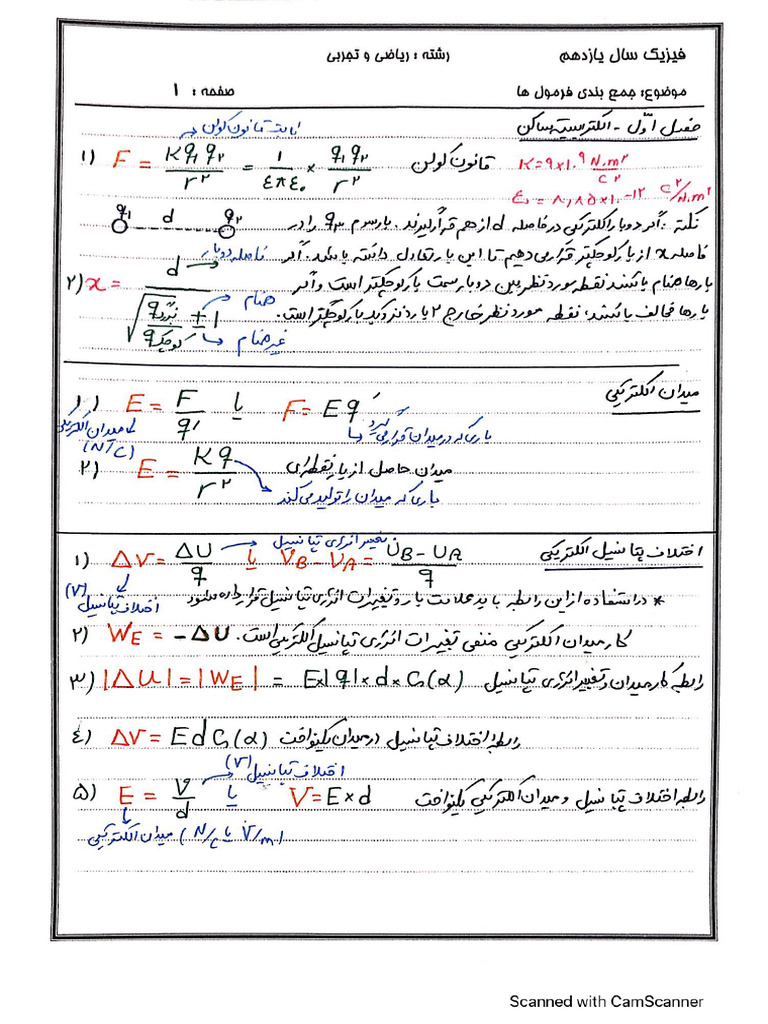 فیزیک سال یازدهم
رشته : ریاضی و تجربی
موضوع: جمع بندی فرمول ها
صفحه : ۱
فصل اوّل - الکتریسیته ساکن
ثابت قانون کولن
۱) F = Kq₁q₂ / r² = 1/4πε₀ × q₁q₂ / r² قانون کولن
K = ۹×۱۰⁹ N.m²/C²
ε₀ = ۸٫۸۵×۱۰⁻¹² C²/N.m²
q₁ d q₂
نکته : اگر دو بار الکتریکی در فاصله d از هم قرار گیرند . بار سوم q₃ را در
فاصله x از بار کوچکتر قرار می دهیم تا این بار تعادل داشته باشد . اگر
بارها همنام باشند نقطه مورد نظر بین دو بار سمت بار کوچکتر است و اگر
بارها مخالف باشند ، نقطه مورد نظر خارج ۲ بار و نزدیک بار کوچکتر است .
۲) x = d / √(q بزرگ / q کوچک ± ۱)
فاصله دو بار
همنام
غیر همنام
میدان الکتریکی
۱) E = F / q′ یا F = Eq′
میدان الکتریکی (N/C)
باری که در میدان قرار می گیرد
۲) E = Kq / r² میدان حاصل از بار نقطه ای
باری که میدان را تولید می کند
اختلاف پتانسیل الکتریکی
تغییر انرژی پتانسیل
۱) ΔV = ΔU / q یا V_B − V_A = U_B − U_A / q
اختلاف پتانسیل (V)
* در استفاده از این رابطه باید علامت بار و تغییرات انرژی پتانسیل قرار داده شود
۲) W_E = − ΔU کار میدان الکتریکی منفی تغییرات انرژی پتانسیل الکتریکی است .
۳) |ΔU| = |W_E| = E×|q|×d×Cos(α) رابطه کار میدان و تغییر انرژی پتانسیل
۴) ΔV = E d Cos(α) رابطه اختلاف پتانسیل در میدان یکنواخت
اختلاف پتانسیل (V)
۵) E = V / d یا V = E×d رابطه اختلاف پتانسیل و میدان الکتریکی یکنواخت
میدان الکتریکی (N/C یا V/m)
Scanned with CamScanner